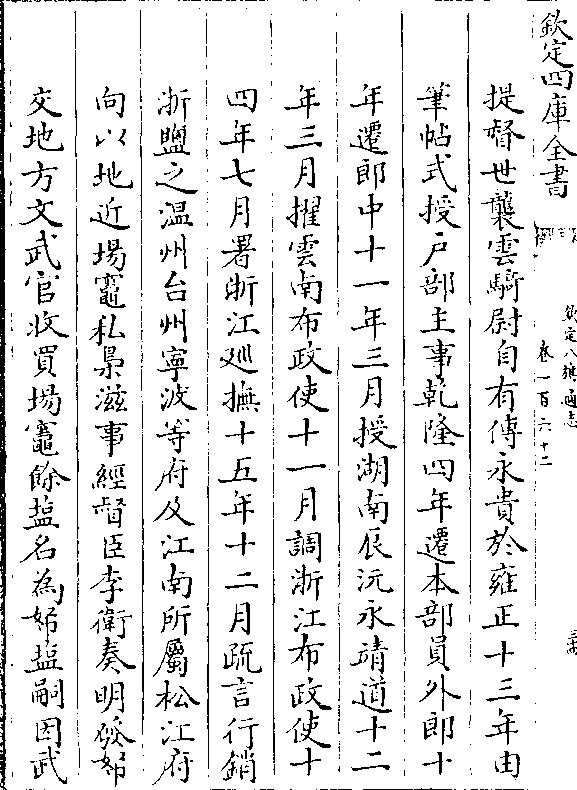 欽定四庫全書
欽定八旗通志
卷一百六十二
提督世襲雲騎尉自有傳永貴於雍正十三年由
筆帖式授户部主事乾隆四年遷本部員外郎十
年遷郎中十一年三月授湖南辰沅永靖道十二
年三月擢雲南布政使十一月調浙江布政使十
四年七月署浙江廵撫十五年十二月疏言行銷
浙鹽之温州台州寧波等府及江南所屬松江府
向以地近場竈私梟滋事經督臣李衛奏明發帑
交地方文武官收買場竈餘塩名為帑塩嗣因武